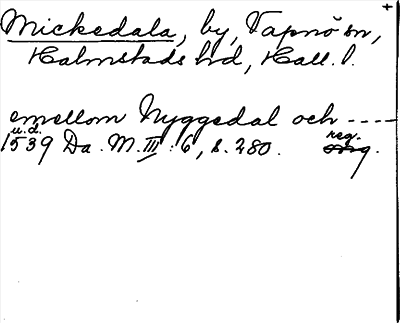 +
Mickedala, by, Vapnö sn,
Halmstads hd, Hall. l.
emellom Nyggedal och ----
u.d. reg.
1539 Da. M. III: 6, s. 280. orig.